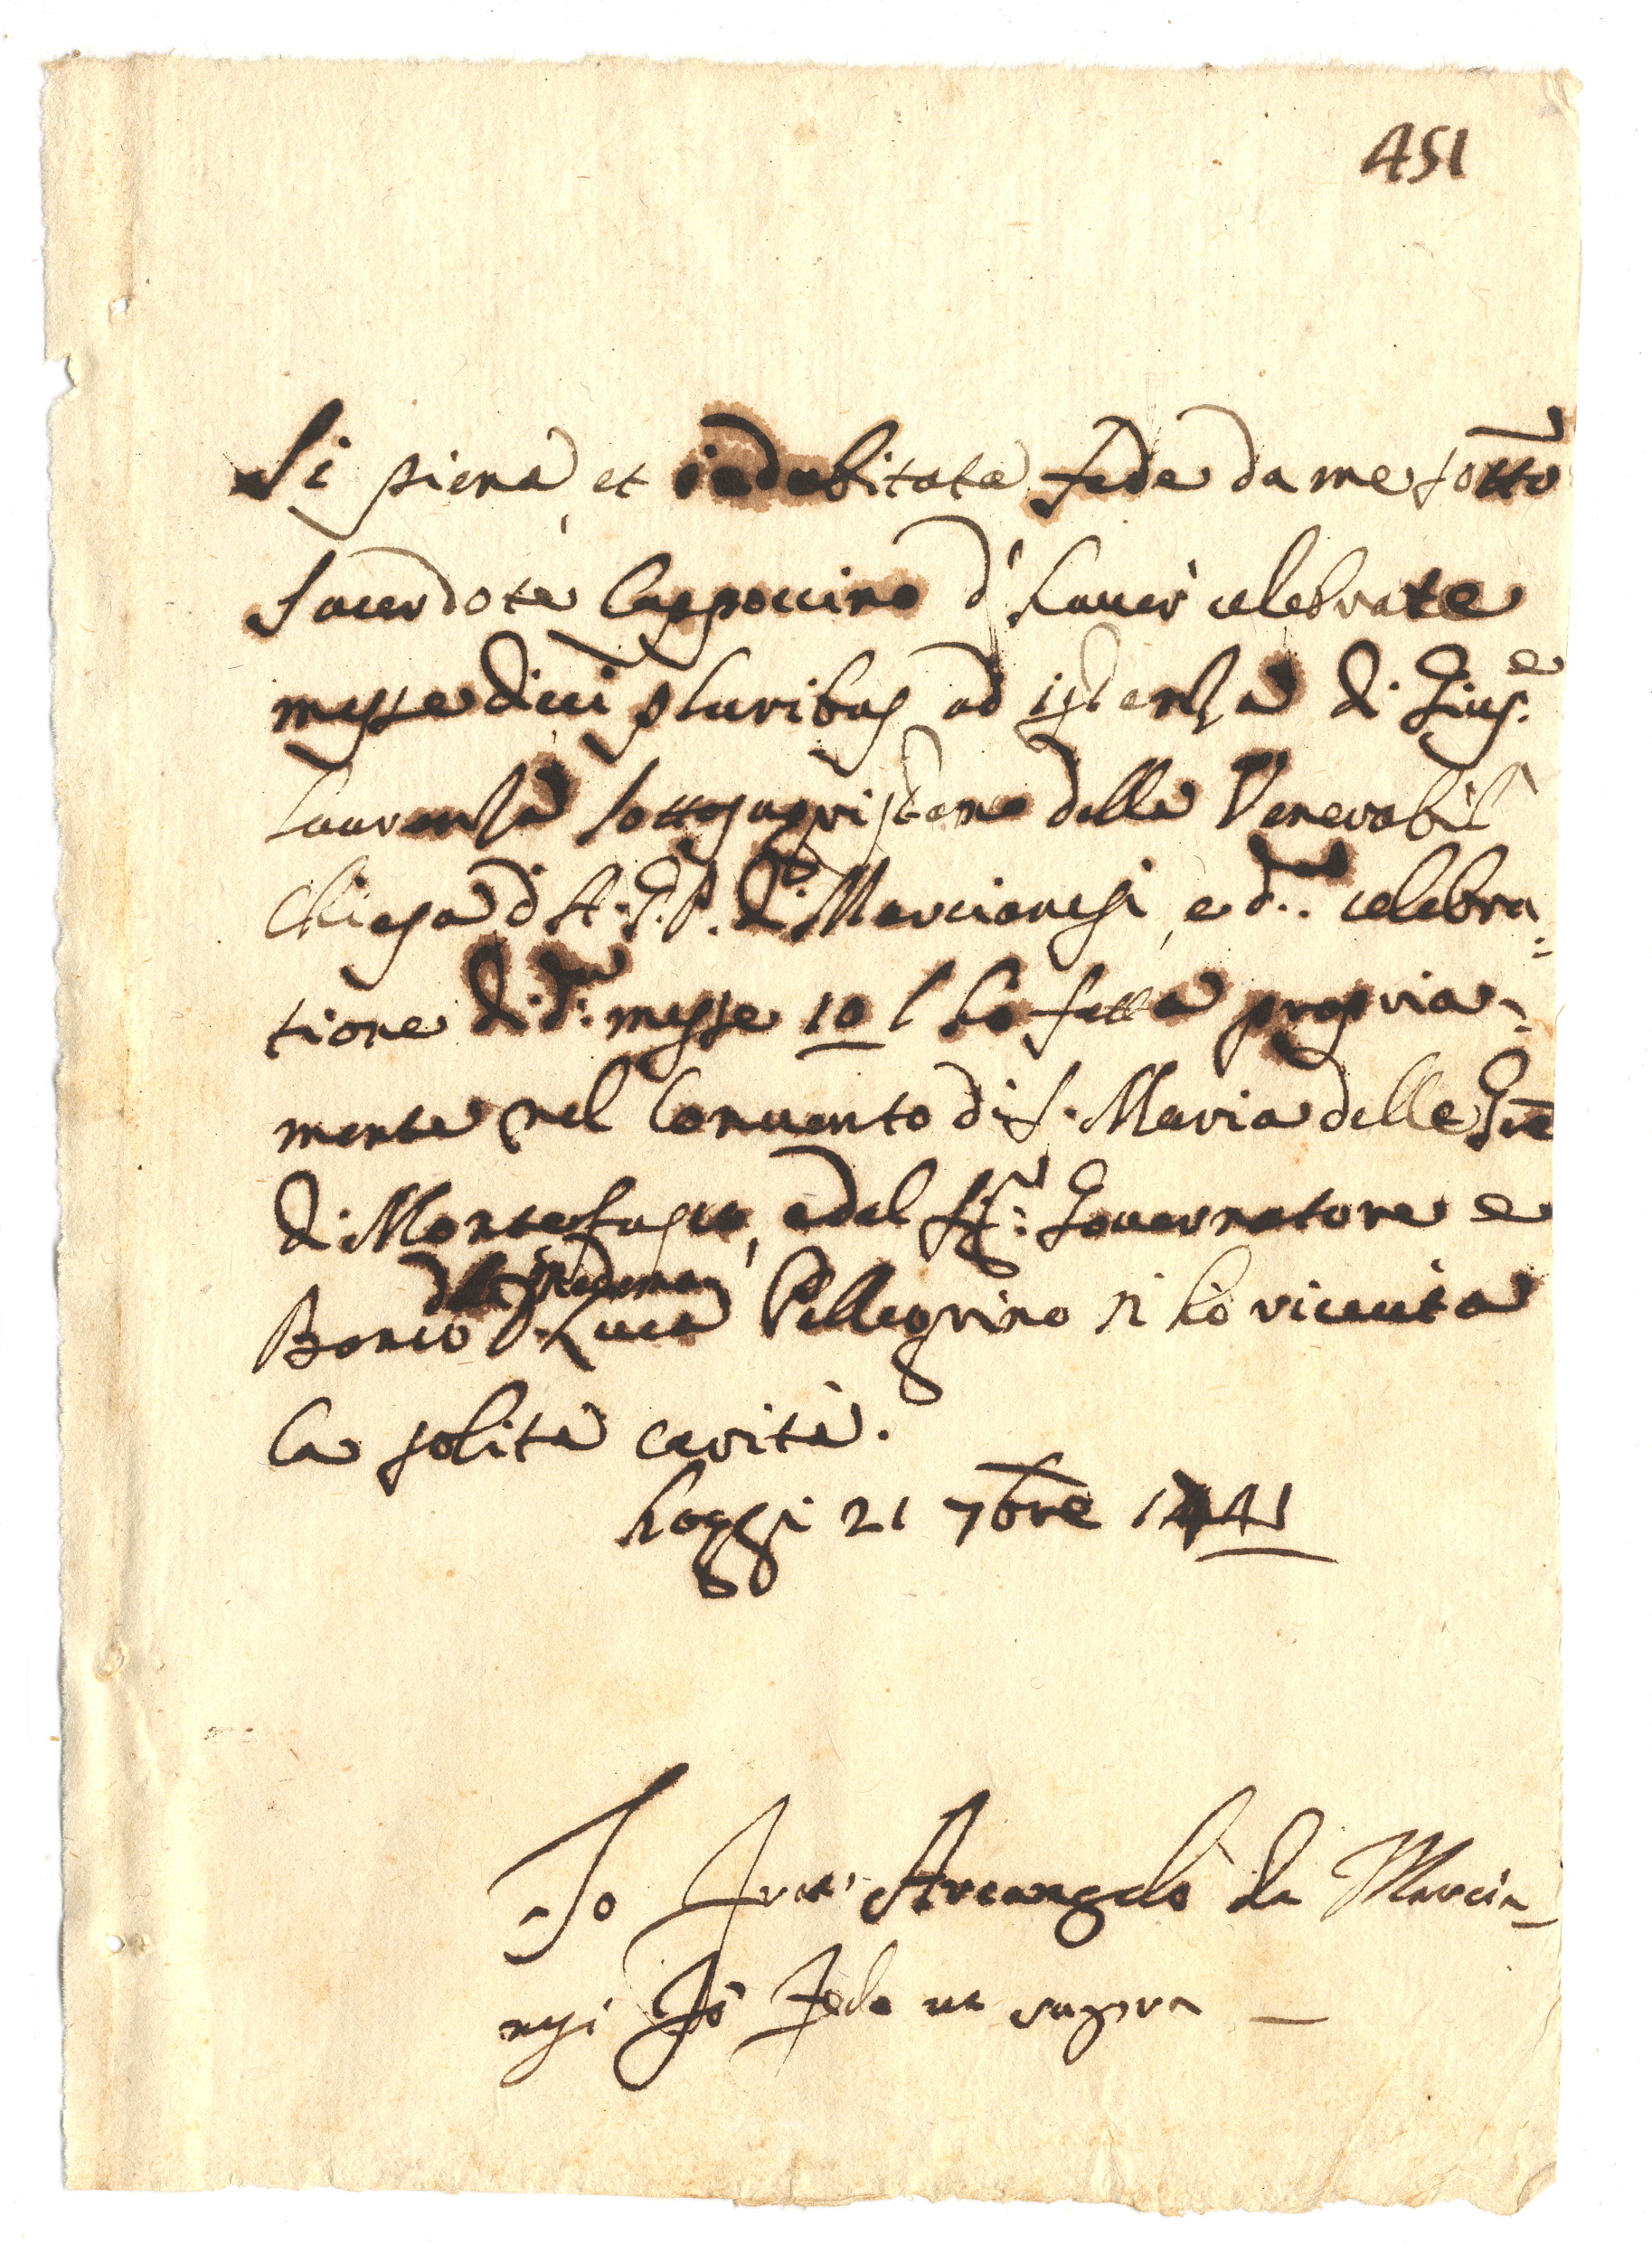 451
Si piena, et indubitata fede da me sotto
Sacerdote Cappoccino d'haver celebrate
messe dieci pluribus ad istanza di Gius.e
Laurenza sottosagristano della Venerabil
Chiesa d A. G. P. di Marcianesi, e d.a celebra=
tione di d.e messe 10 l ho fatta propria=
mente nel Convento di S. Maria delle Gre
di Montefusco, e dal Sig.r Governatore e
della medema
Bonco Luca Pellegrino n ho ricevuta
la solita carità.
hoggi 21 7bre 1741
Io Frat' Arcangelo da Marcia=
nesi fò fede ut supra